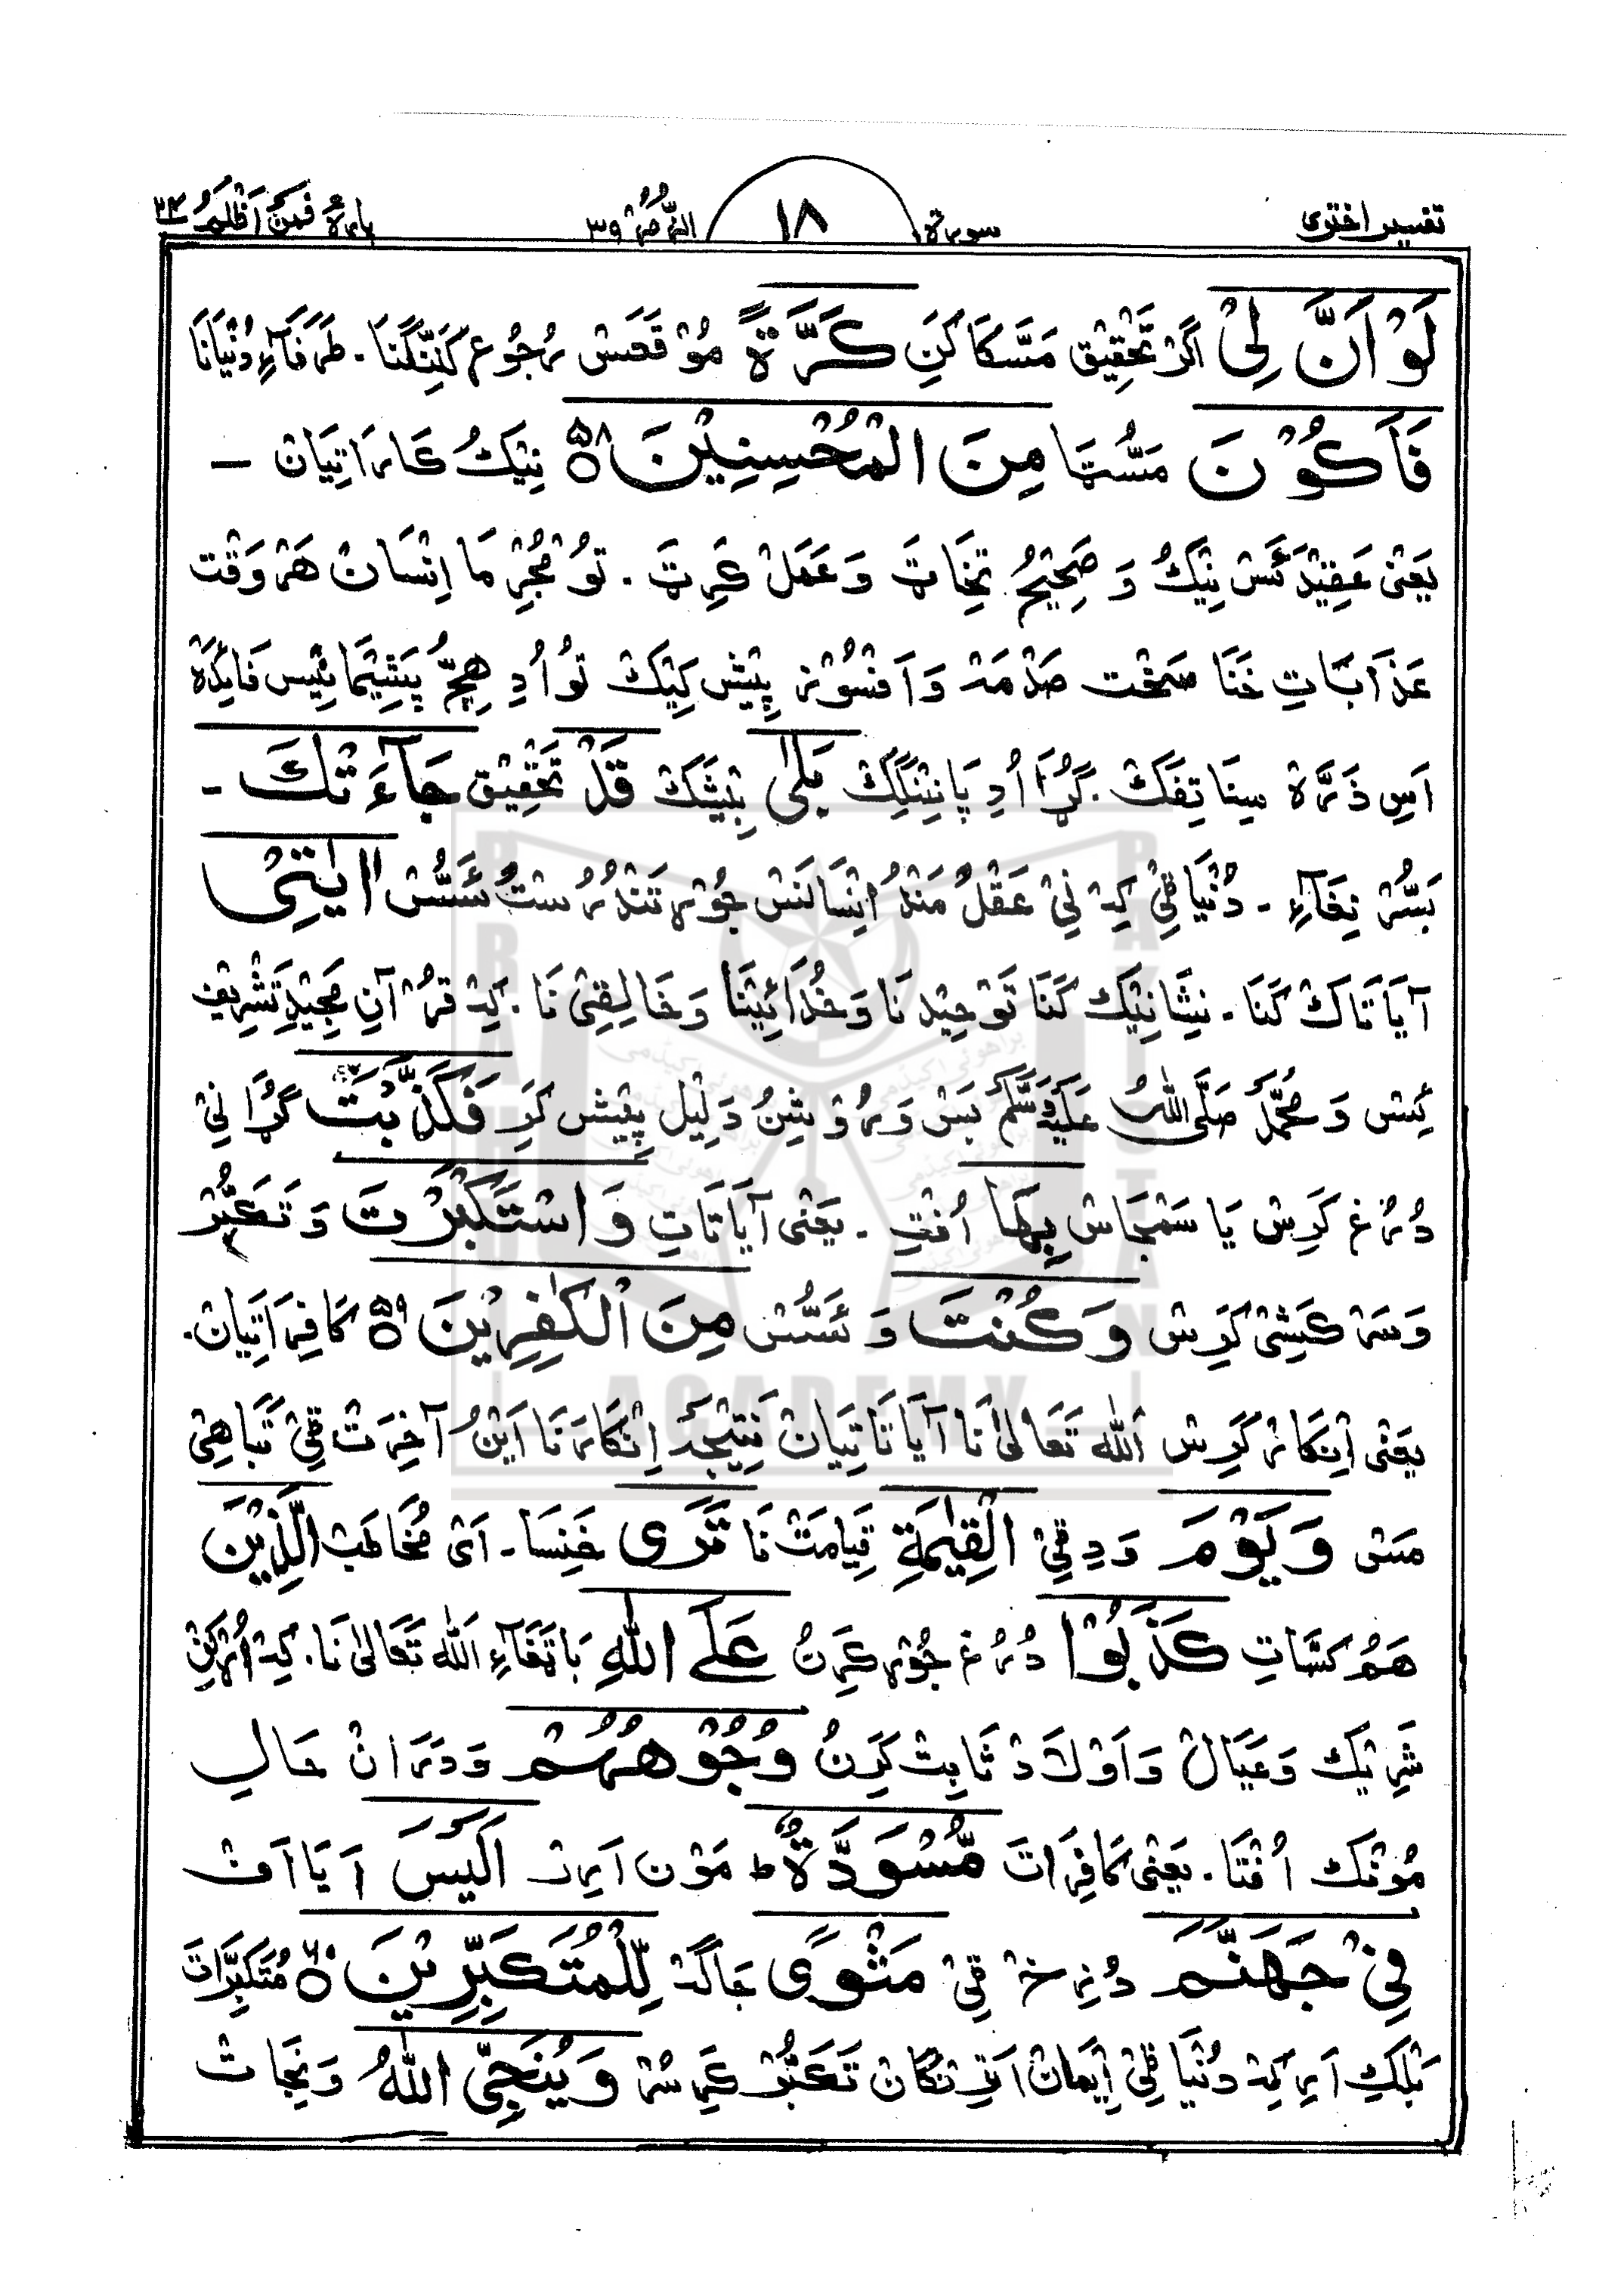 تفسیر اختری سورة ١٨ الزُّمَرُ ٣٩ پارهٔ فَمَنْ اَظْلَمُ ٢٤
لَوْ اَنَّ لِیْ اگر تَحْقِیْق مَسَّکَا کَنِ کَرَّةً مُوْقَعَس رُجُوع کَنِنَّگنَا۔ طَرَفَآءِ دُنْیَانَا
فَاَکُوْنَ مَسُّٹَا مِنَ الْمُحْسِنِیْنَ ۵۸ نِیْکُ کَارَاتِیَان ۔
یَعْنٖی عَقِیْدَئَس نِیْکُ وَ صَحِیْحُ تِخَاٹَ وَ عَمَلْ کَرِٹَ ۔ تَوْ مُجْرِمَا اِنْسَانْ هَرْ وَقْت
عَذَابَاتِ خَنَا سَخْت صَدْمَہْ وَ اَفْسُوْز پِیْش کَیْکْ تَوْ اُدِ هِچُّ پَشِیْمَانِیْس فَایِٔدَهْ
اَسِ ذَرَّهْ سِنَا تِفَکْ ۔ گُڑَا اُدِ پَانِنْگِکْ بَلٰی بِیْشَکْ قَدْ تَحْقِیْق جَآءَتْكَ ۔
بَسُّر نِغَآءِ ۔ دُنْیَا ٹِیْ کِہْ نِیْ عَقْلْ مَنْدُ اِنْسَانَس جُوْڑ تَنْدُرُسْتُ ئَسُّسْ اٰیٰتِیْ
آیَاتَاکْ کَنَا ۔ نِشَانِیْک کَنَا تَوْحِیْد نَا وَ خُدَائِیْنَا وَ خَالِقِیْ نَا ۔ کِہْ قُرْآنِ مَجِیْدِ تَشْرِیْف
ئِس وَ مُحَمَّد صَلَّى اللهُ عَلَیْهِ وَسَلَّمَ بَس وَ رُوْشِنُ دَلِیْل پِیْش کَرِ فَکَذَّبْتَ گُڑَا نِیْ
دُرُغ کَرِس یَا سَمْجَاس بِهَا اُفْتِ ۔ یَعْنٖی آیَاتَاتِ وَ اسْتَکْبَرْتَ وَ تَکَبُّرْ
وَ سَرْ کَشِیْ کَرِس وَکُنْتَ وَ ئَسُّس مِنَ الْکٰفِرِیْنَ ۵۹ کَافِرَاتِیَان۔
یَعْنٖی اِنکَار کَرِس اَللّٰه تَعَالٰی نَا آیَاتَاتِیَانْ نَتِیْجَہ اِنْکَارَنَا اَیْنُ آخِرَتْ ٹِیْ تَبَاهِیْ
مَس وَیَوْمَ وَ دِ ٹِیْ الْقِیٰمَةِ قِیَامَتْ نَا تَرَی خَنِسَا ۔ اَیْ مُخَاطَبْ الَّذِیْنَ
هَمُ کَسَّاتِ کَذَبُوْا دُرُغ جُوْڑ کَرِنُ عَلَی اللّٰهِ بَاٹَغَآءِ اَللّٰه تَعَالٰی نَا۔ کِہْ اُڑکِنْ
شَرِیْک وَعَیَالْ وَ اَوْلَادْ ثَابِتْ کَرِنُ وُجُوْهُهُمْ وَ دَرَانْ حَالِ
مُوْنْک اُفْتَا ۔ یَعْنٖی کَافِرَاتَ مُّسْوَدَّةٌ ؕ مَوْن اَیِر اَلَیْسَ آیَا اَف
فِیْ جَهَنَّمَ دُزِخ ٹِیْ مَثْوًی جَاگَہ لِّلْمُتَکَبِّرِیْنَ ۶۰ مُتَکَبِّرَاتَ
بَلِکِ اَیِر کِہْ دُنْیَا ٹِیْ اِیْمَانْ اَتِنْگَان تَکَبُّرْ کَرِسُر وَیُنَجِّی اللّٰهُ وَ نَجَات